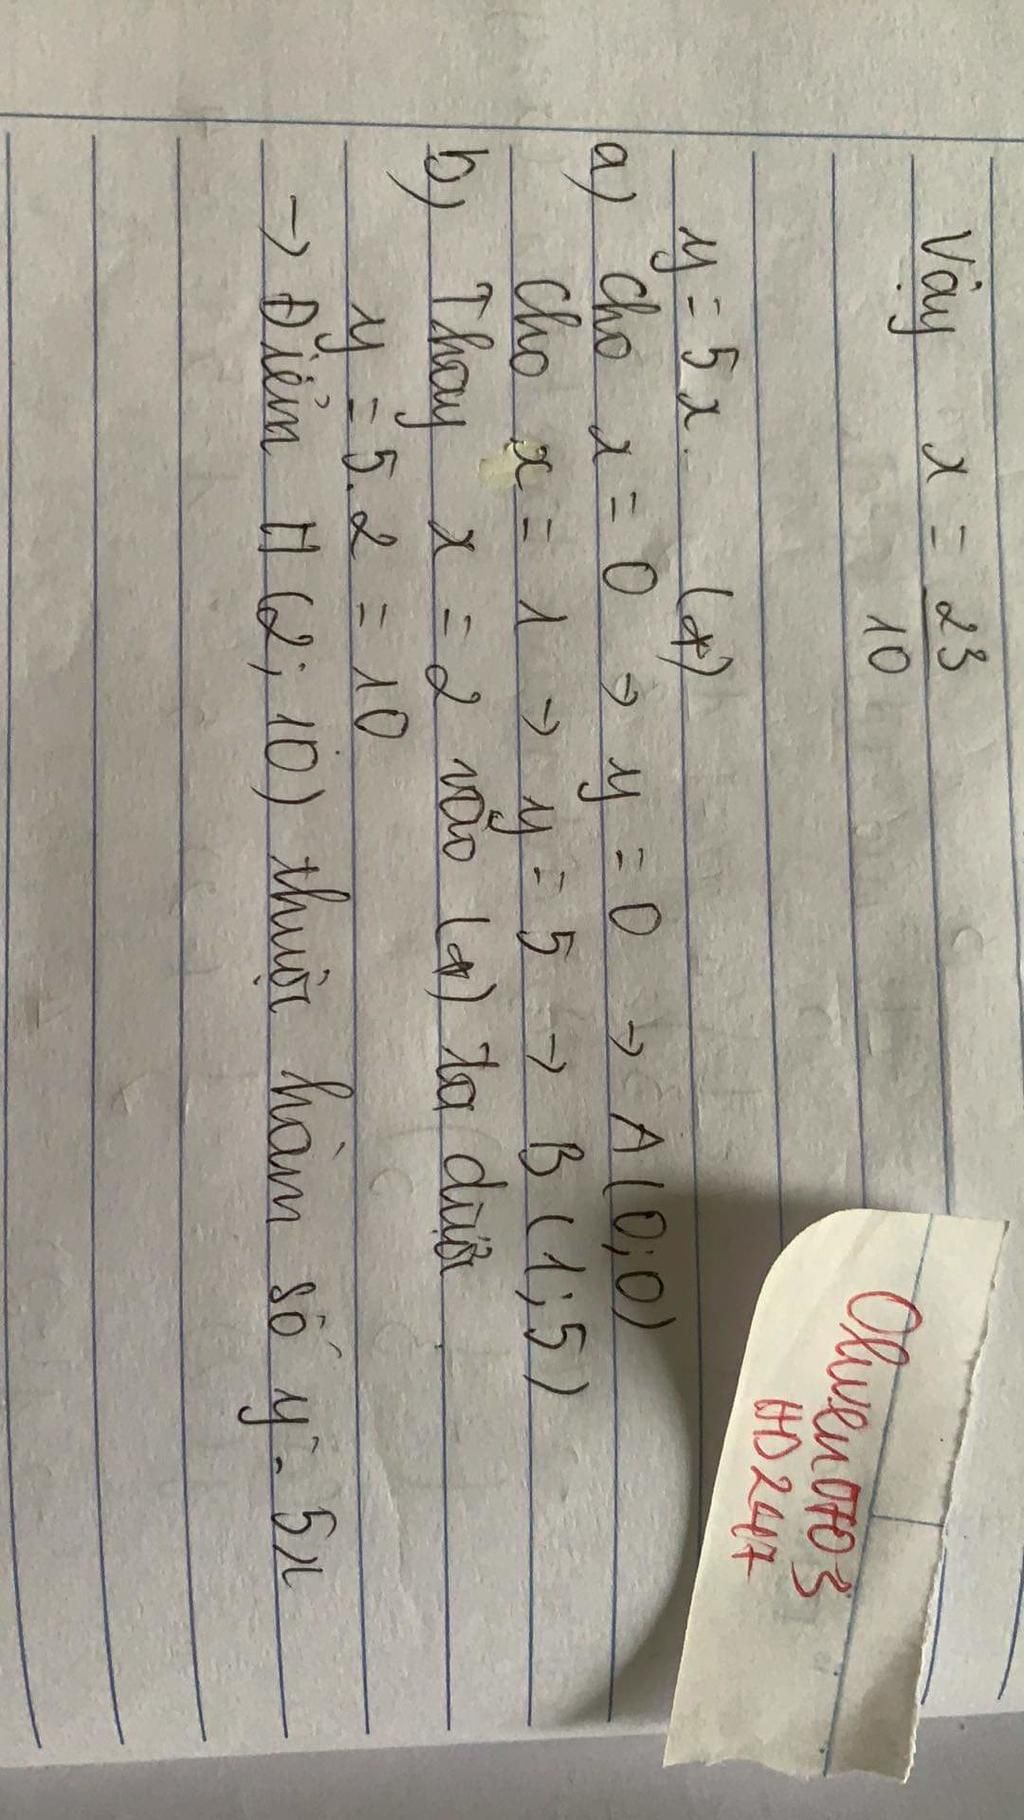 Vậy x = 23/10
y = 5x. (*)
a) Cho x = 0 → y = 0 → A (0; 0)
Cho x = 1 → y = 5 → B (1; 5)
b) Thay x = 2 vào (*) ta được
y = 5.2 = 10
→ Điểm M (2; 10) thuộc hàm số y = 5x
HD247